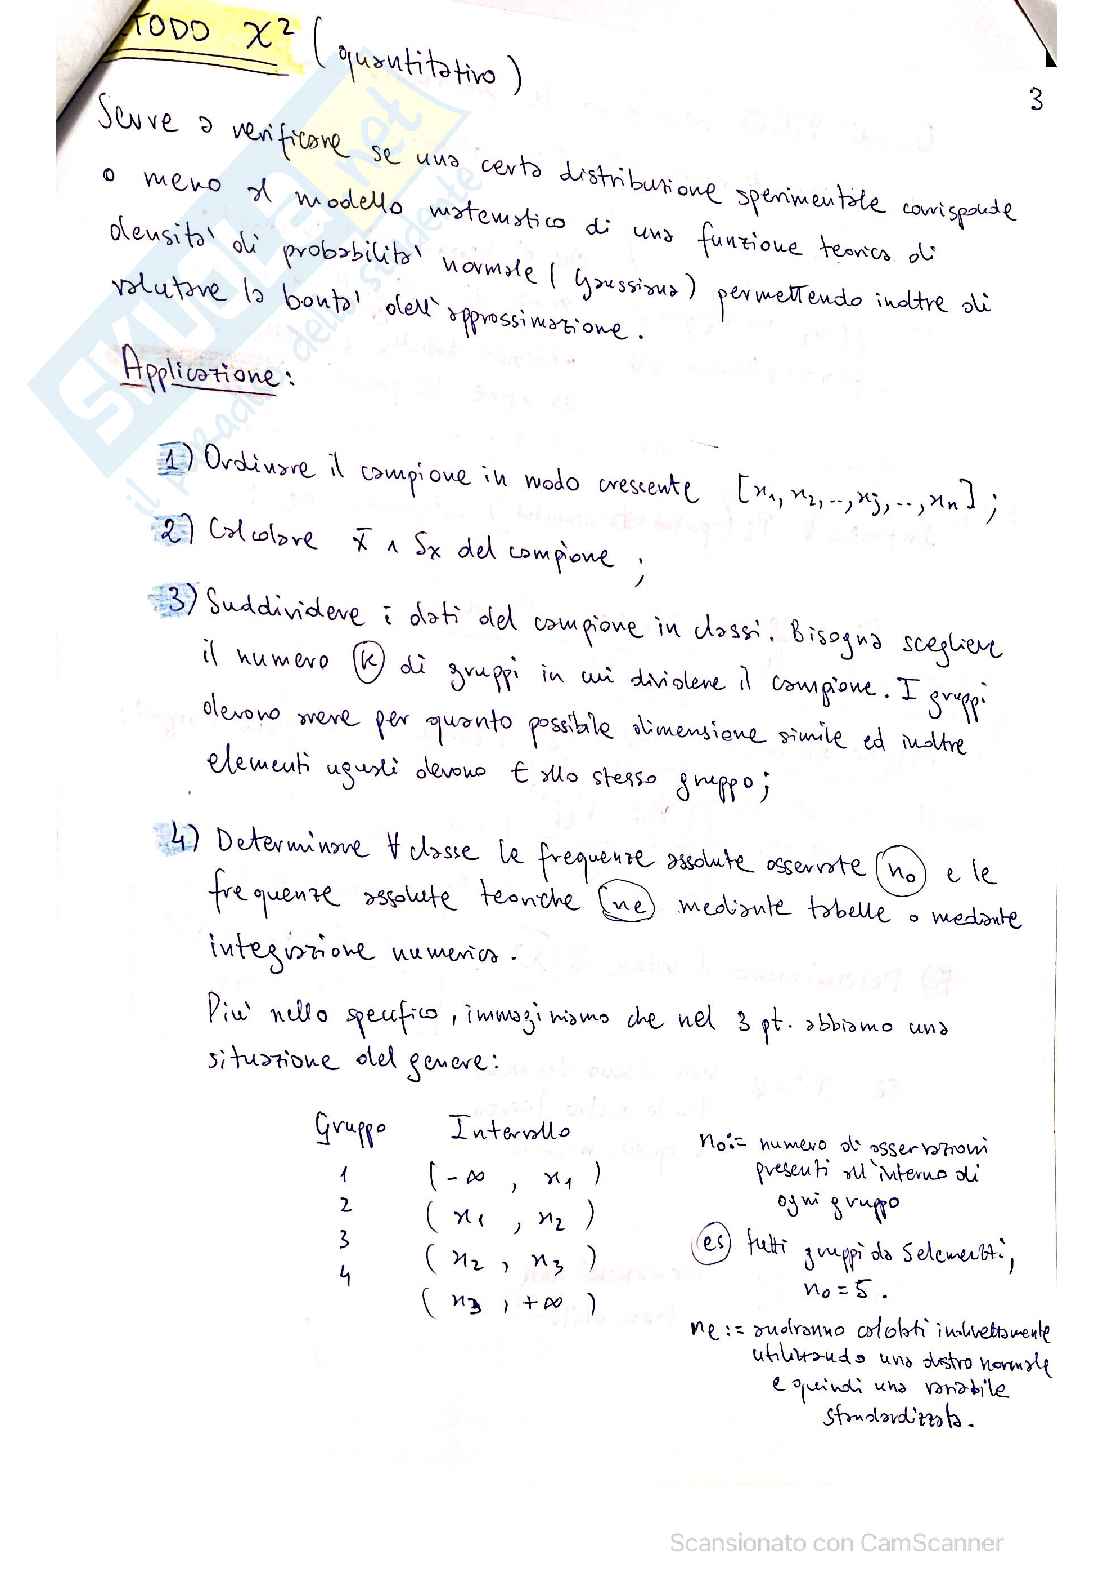 TODO X² (quantitativo)
3
Serve a verificare se una certa distribuzione sperimentale corrisponde
o meno al modello matematico di una funzione teorica di
densita' di probabilita' normale (Gaussiana) permettendo inoltre di
valutare la bonta' dell'approssimazione.
Applicazione:
1) Ordinare il campione in modo crescente [x₁, x₂, .., xj, .., xn] ;
2) Calcolare x̄ ∧ Sx del campione ;
3) Suddividere i dati del campione in classi. Bisogna scegliere
il numero (k) di gruppi in cui dividere il campione. I gruppi
devono avere per quanto possibile dimensione simile ed inoltre
elementi uguali devono ∈ allo stesso gruppo;
4) Determinare ∀ classe le frequenze assolute osservate (no) e le
frequenze assolute teoriche (ne) mediante tabelle o mediante
integrazione numerica.
Piu' nello specifico, immaginiamo che nel 3 pt. abbiamo una
situazione del genere:
Gruppo Intervallo
1 (-∞ , x₁)
2 (x₁ , x₂)
3 (x₂ , x₃)
4 (x₃ , +∞)
no:= numero di osservazioni
presenti all'interno di
ogni gruppo
(es) tutti gruppi da 5 elementi,
no = 5.
ne := andranno calcolati indirettamente
utilizzando una distro normale
e quindi una variabile
standardizzata.
SKUOLA.net
il paradiso dello studente
Scansionato con CamScanner